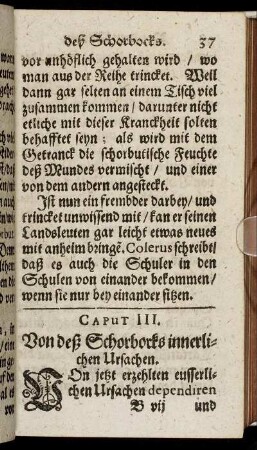 deß Schorbocks. 37
vor unhöflich gehalten wird / wo
man aus der Reihe trincket. Weil
dann gar selten an einem Tisch viel
zusammen kommen / darunter nicht
etliche mit dieser Kranckheit solten
behafftet seyn; als wird mit dem
Getranck die schorbutische Feuchte
deß Mundes vermischt / und einer
von dem andern angesteckt.
Ist nun ein frembder darbey / und
trincket unwissend mit / kan er seinen
Landsleuten gar leicht etwas neues
mit anheim bringẽ. Colerus schreibt /
daß es auch die Schuler in den
Schulen von einander bekommen /
wenn sie nur bey einander sitzen.
CAPUT III.
Von deß Schorbocks innerli-
chen Ursachen.
VOn jetzt erzehlten eusserli-
chen Ursachen dependiren
B vij und